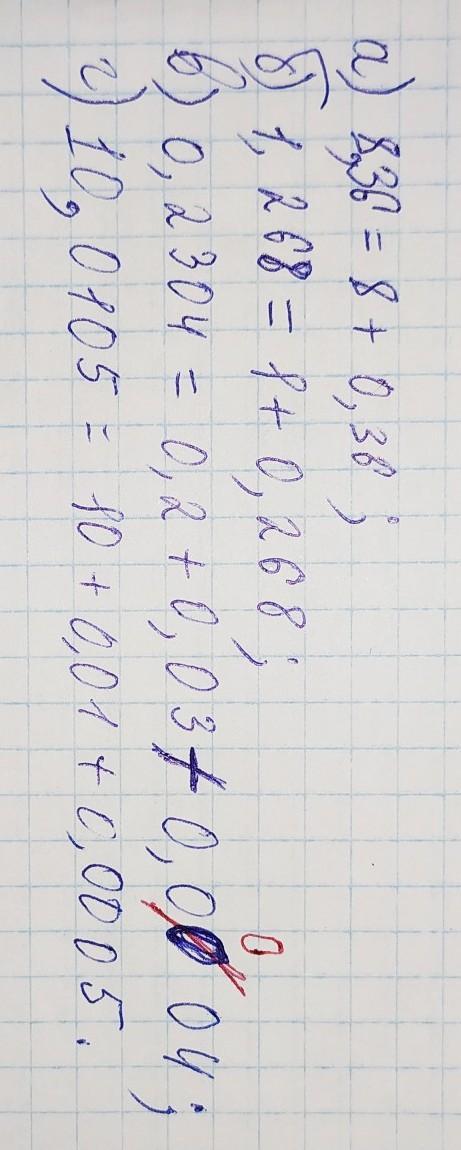 а) 8,38 = 8 + 0,38;
б) 1,268 = 1 + 0,268;
в) 0,2304 = 0,2 + 0,03 + 0,0004;
г) 10,0105 = 10 + 0,01 + 0,0005.